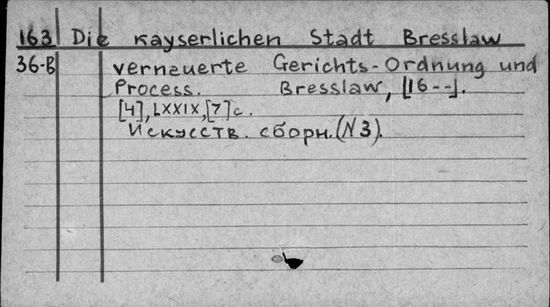 163 Die kayserlichen Stadt Bresslaw
36-B verneuerte Gerichts-Ordnung und
Process. Bresslaw, [16--].
[4], LXXIX, [7] с.
Искусств. сборн. (N 3).